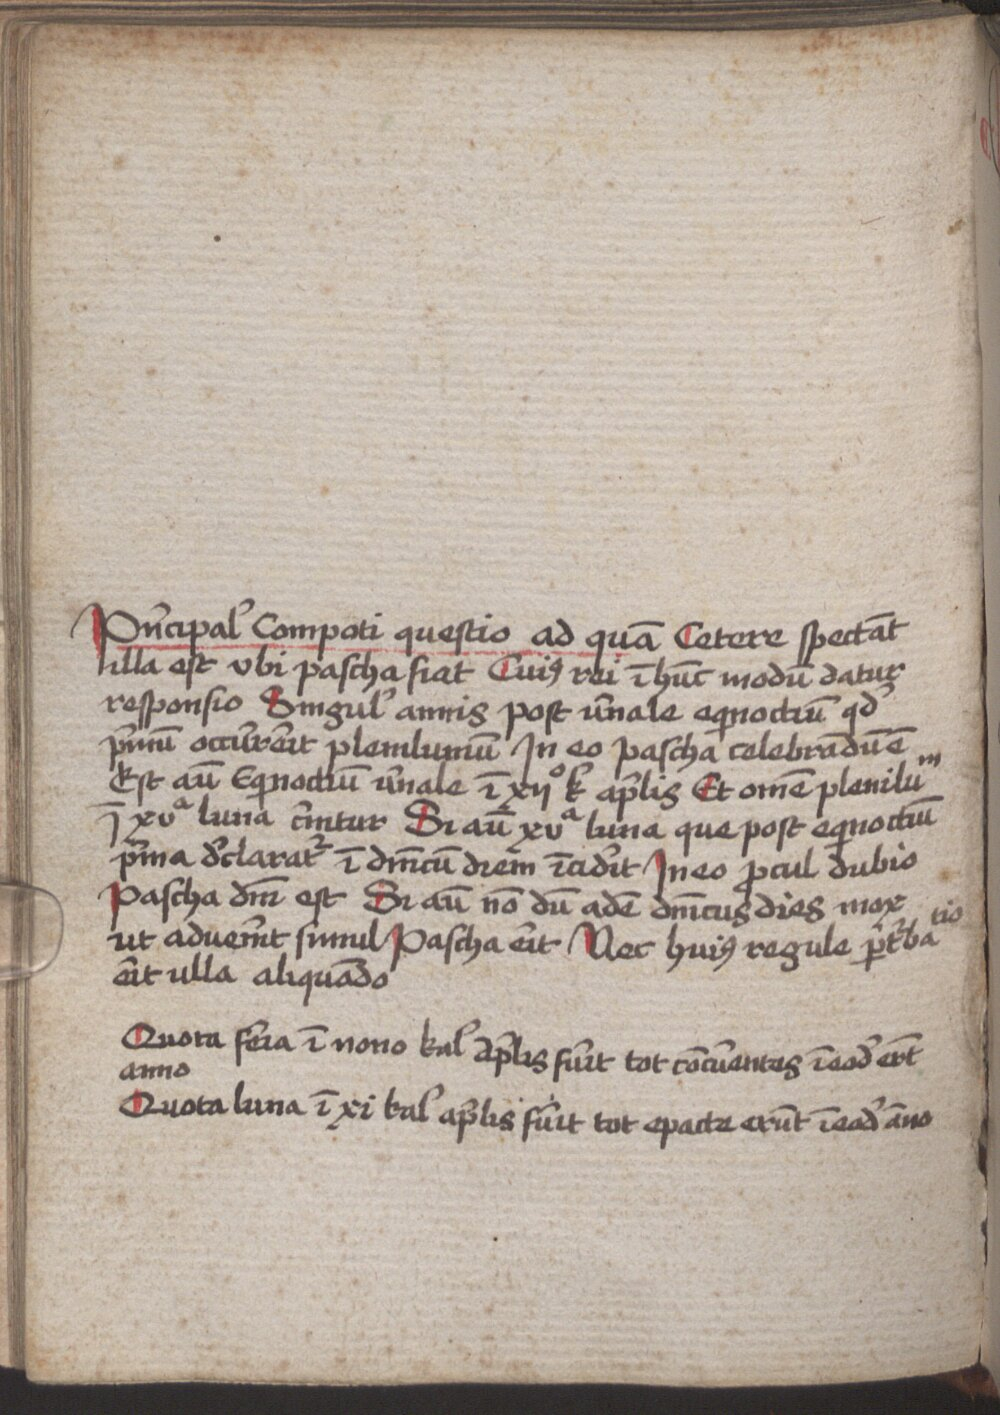 Pn̄cipal᷒ Compoti questio ad quā Cetere spectāt
illa est vbi pascha fiat Cuiꝰ rei ī hūc modū datur
responsio Singul᷒ annis post v̄nale eqnoctiū qd᷒
p̄mū occur̄erit plenilumiū In eo pascha celebrādū ē
Est aū Eqnoctiū v̄nale ī xijº k᷒ ap̄lis Et omē plenilumᵐ
ī xvª luna c̄nitur Si aū xvª luna que post eqnoctiū
p̄ma d᷒claratᷣ ī dn̄icū diem īcid᷒it In eo ꝓcul dubio
Pascha dn̄i est Si aū nō dū adē dn̄icus dies mox
ut aduen̄it simul Pascha erit Nec huiꝰ regule p̄t᷒batio
er̄it ulla aliquādo
Quota fer̄ia ī nono kal᷒ ap̄lis fu̅it tot cōcur̄entes ī eod᷒ er̄t
anno
Quota luna ī xi kal᷒ ap̄lis fu̅it tot epacte erūt ī eod᷒ āno